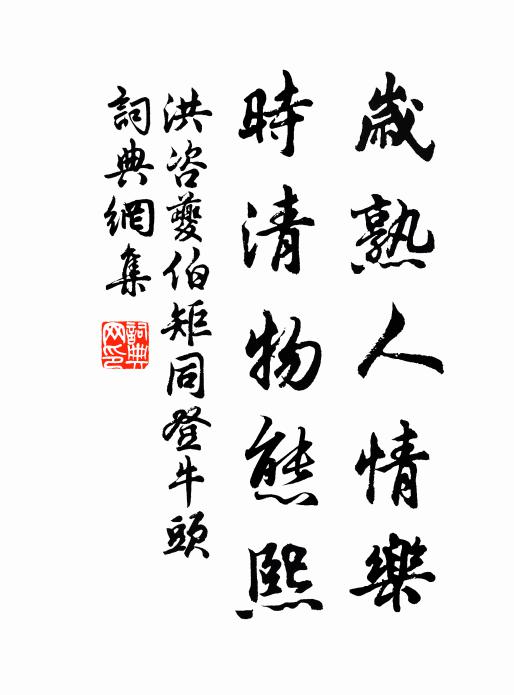 歲熟人情樂
時清物態熙
洪咨夔伯矩同登牛頭
詞典網集
詞典網印